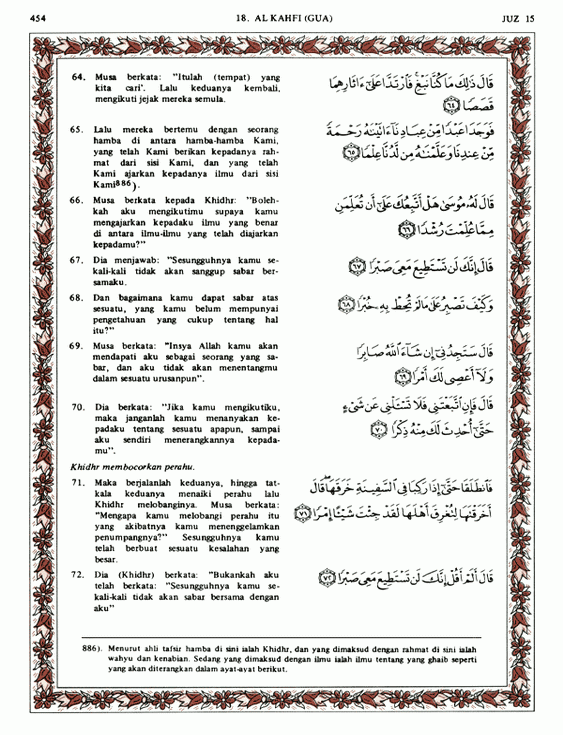 454 18. AL KAHFI (GUA) JUZ 15
64. Musa berkata: "Itulah (tempat) yang
kita cari'. Lalu keduanya kembali,
mengikuti jejak mereka semula.
قَالَ ذَٰلِكَ مَا كُنَّا نَبْغِ فَٱرْتَدَّا عَلَىٰٓ ءَاثَارِهِمَا
قَصَصًا ٦٤
65. Lalu mereka bertemu dengan seorang
hamba di antara hamba-hamba Kami,
yang telah Kami berikan kepadanya rah-
mat dari sisi Kami, dan yang telah
Kami ajarkan kepadanya ilmu dari sisi
Kami886).
فَوَجَدَا عَبْدًا مِّنْ عِبَادِنَآ ءَاتَيْنَٰهُ رَحْمَةً
مِّنْ عِندِنَا وَعَلَّمْنَٰهُ مِن لَّدُنَّا عِلْمًا ٦٥
66. Musa berkata kepada Khidhr: "Boleh-
kah aku mengikutimu supaya kamu
mengajarkan kepadaku ilmu yang benar
di antara ilmu-ilmu yang telah diajarkan
kepadamu?"
قَالَ لَهُۥ مُوسَىٰ هَلْ أَتَّبِعُكَ عَلَىٰٓ أَن تُعَلِّمَنِ
مِمَّا عُلِّمْتَ رُشْدًا ٦٦
67. Dia menjawab: "Sesungguhnya kamu se-
kali-kali tidak akan sanggup sabar ber-
samaku.
قَالَ إِنَّكَ لَن تَسْتَطِيعَ مَعِىَ صَبْرًا ٦٧
68. Dan bagaimana kamu dapat sabar atas
sesuatu, yang kamu belum mempunyai
pengetahuan yang cukup tentang hal
itu?"
وَكَيْفَ تَصْبِرُ عَلَىٰ مَا لَمْ تُحِطْ بِهِۦ خُبْرًا ٦٨
69. Musa berkata: "Insya Allah kamu akan
mendapati aku sebagai seorang yang sa-
bar, dan aku tidak akan menentangmu
dalam sesuatu urusanpun".
قَالَ سَتَجِدُنِىٓ إِن شَآءَ ٱللَّهُ صَابِرًا
وَلَآ أَعْصِى لَكَ أَمْرًا ٦٩
70. Dia berkata: "Jika kamu mengikutiku,
maka janganlah kamu menanyakan ke-
padaku tentang sesuatu apapun, sampai
aku sendiri menerangkannya kepada-
mu".
قَالَ فَإِنِ ٱتَّبَعْتَنِى فَلَا تَسْـَٔلْنِى عَن شَىْءٍ
حَتَّىٰٓ أُحْدِثَ لَكَ مِنْهُ ذِكْرًا ٧٠
Khidhr membocorkan perahu.
71. Maka berjalanlah keduanya, hingga tat-
kala keduanya menaiki perahu lalu
Khidhr melobanginya. Musa berkata:
"Mengapa kamu melobangi perahu itu
yang akibatnya kamu menenggelamkan
penumpangnya?" Sesungguhnya kamu
telah berbuat sesuatu kesalahan yang
besar.
فَٱنطَلَقَا حَتَّىٰٓ إِذَا رَكِبَا فِى ٱلسَّفِينَةِ خَرَقَهَا قَالَ
أَخَرَقْتَهَا لِتُغْرِقَ أَهْلَهَا لَقَدْ جِئْتَ شَيْـًٔا إِمْرًا ٧١
72. Dia (Khidhr) berkata: "Bukankah aku
telah berkata: "Sesungguhnya kamu se-
kali-kali tidak akan sabar bersama dengan
aku"
قَالَ أَلَمْ أَقُلْ إِنَّكَ لَن تَسْتَطِيعَ مَعِىَ صَبْرًا ٧٢
886). Menurut ahli tafsir hamba di sini ialah Khidhr, dan yang dimaksud dengan rahmat di sini ialah
wahyu dan kenabian. Sedang yang dimaksud dengan ilmu ialah ilmu tentang yang ghaib seperti
yang akan diterangkan dalam ayat-ayat berikut.